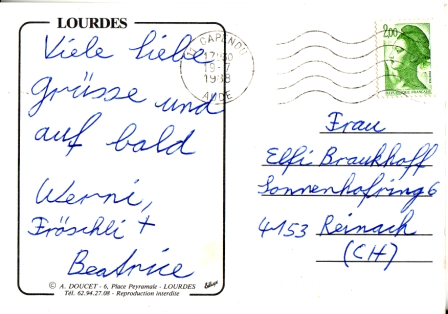 LOURDES
Viele liebe
Grüsse und
auf bald
Werni,
Fröschli +
Beatrice
© A. DOUCET - 6, Place Peyramale - LOURDES
Tél. 62.94.27.08 - Reproduction interdite
CAPENDU
17H30
19-7
1988
AUDE
2,00
REPUBLIQUE FRANÇAISE
Frau
Elfi Braukhoff
Sonnenhofring 6
4153 Reinach
(CH)